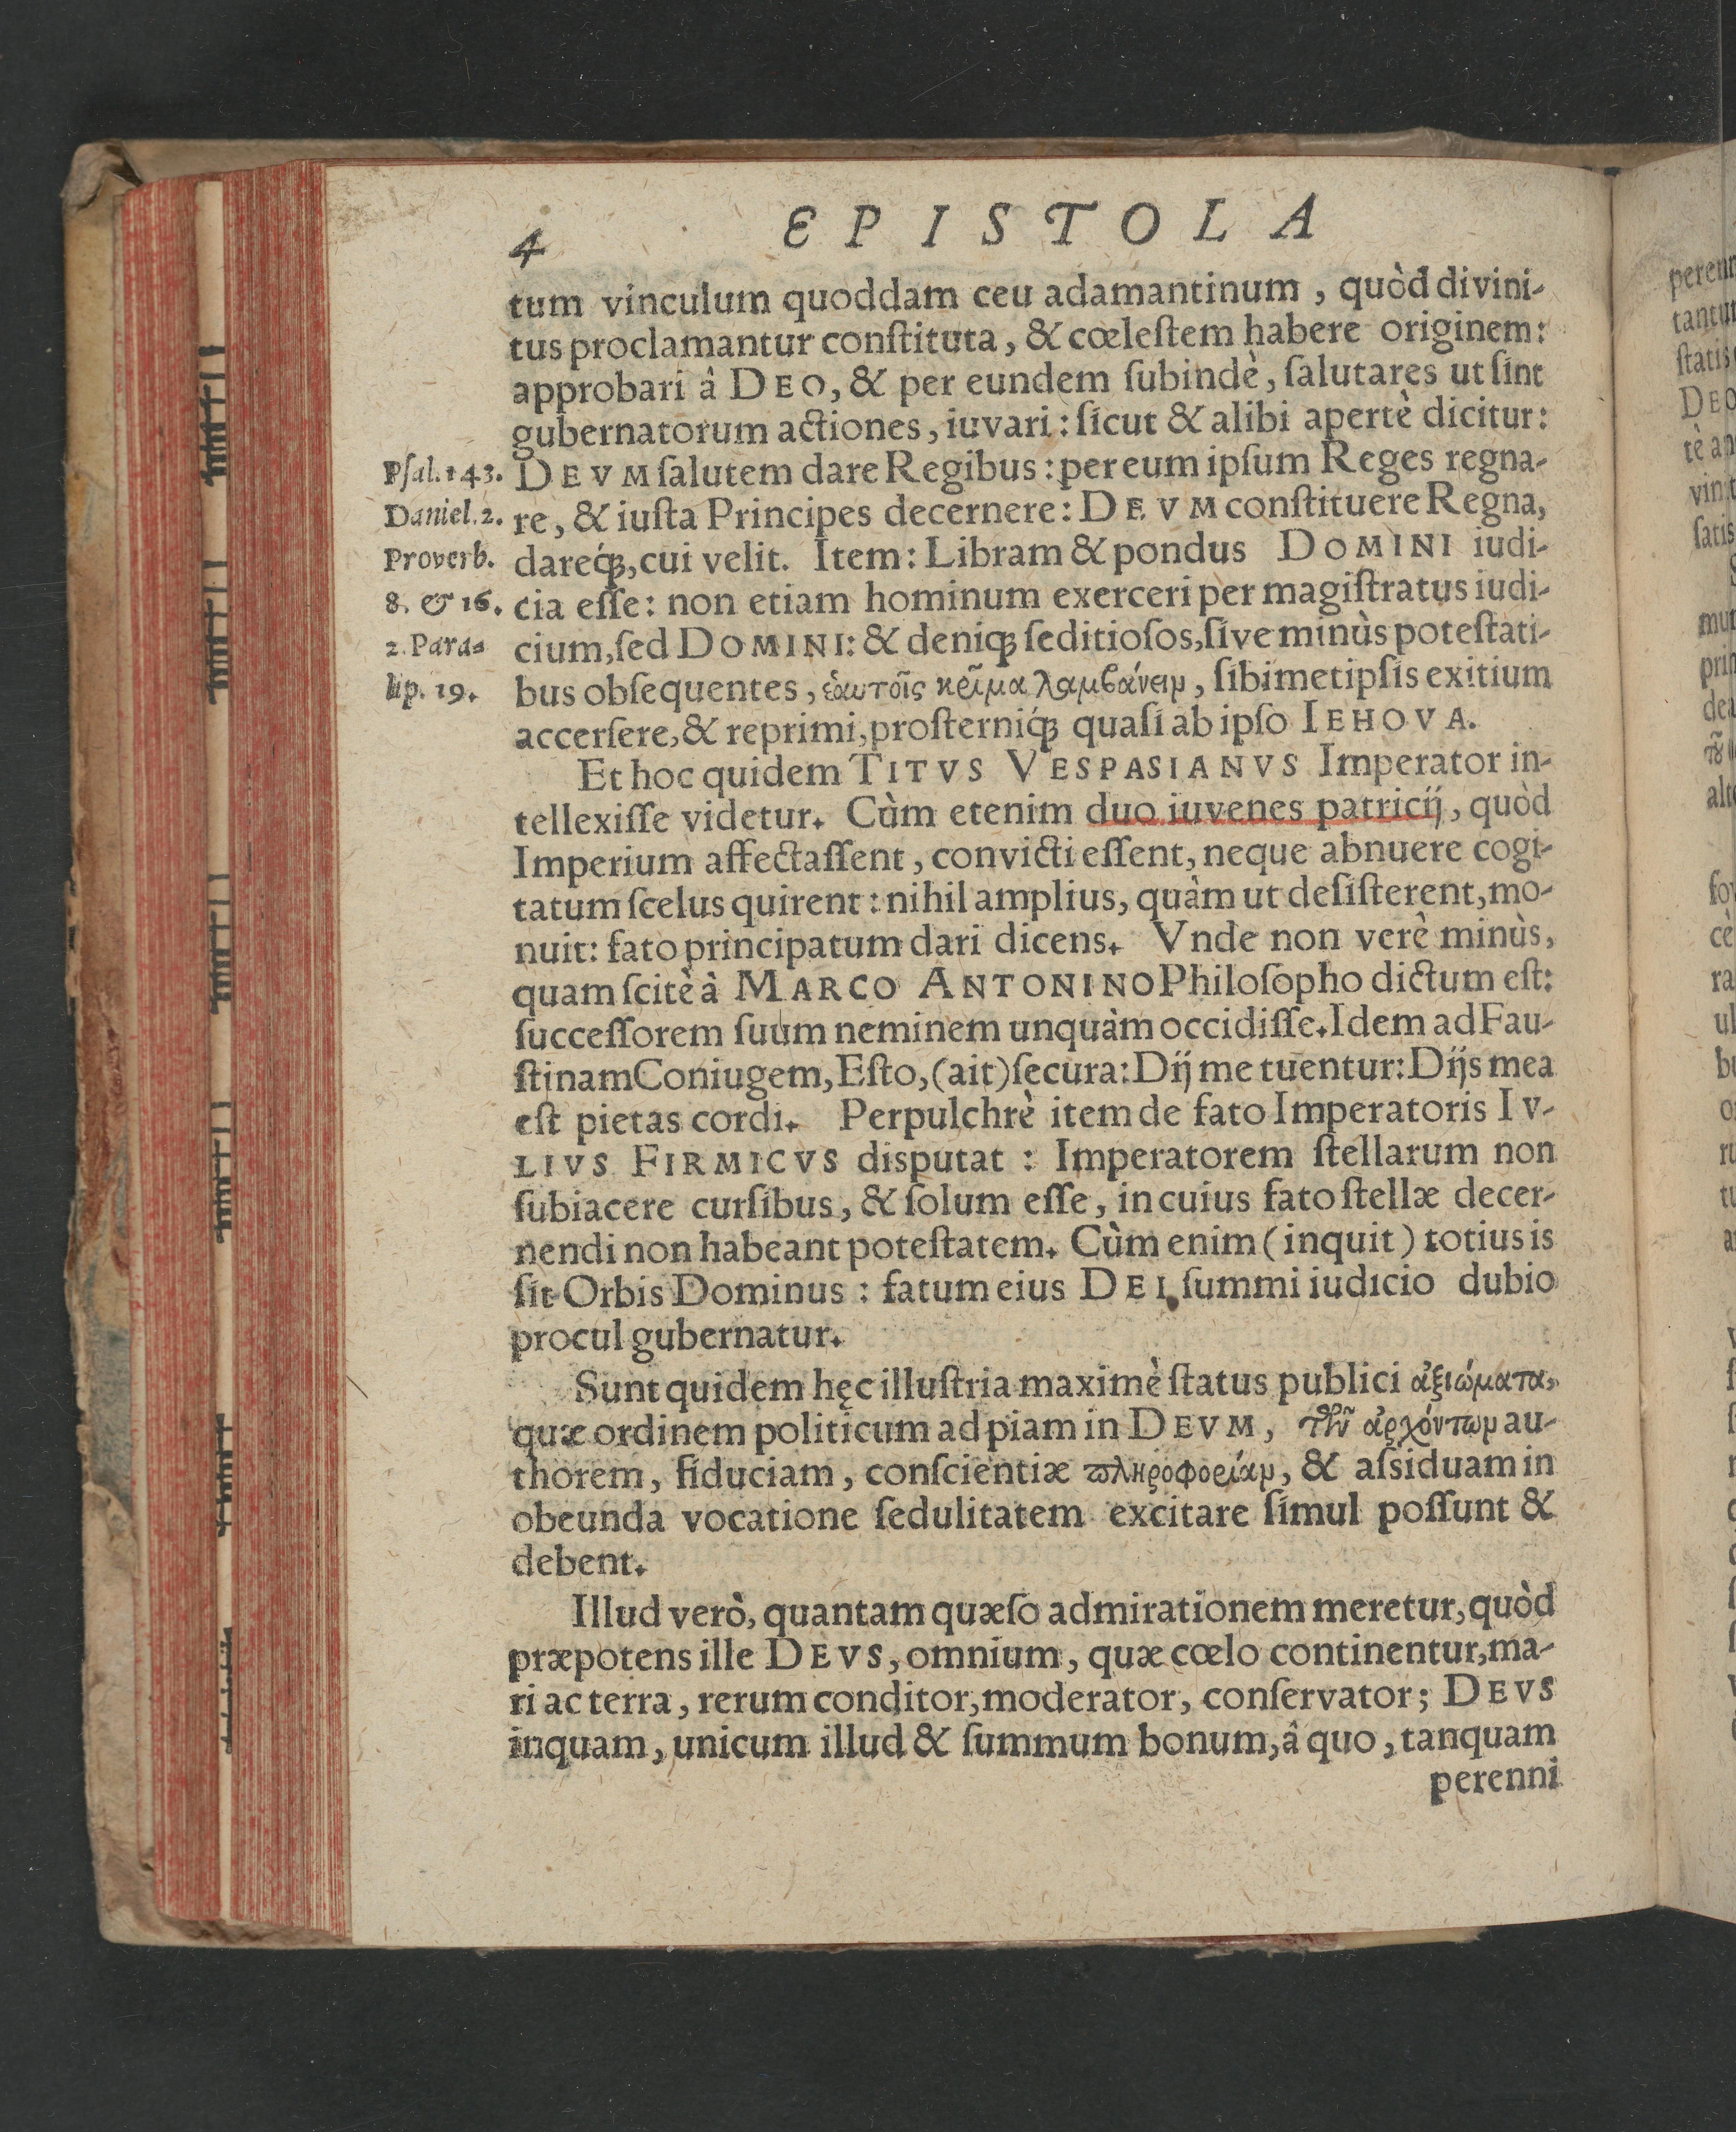 4 EPISTOLA
tum vinculum quoddam ceu adamantinum, quòd divini-
tus proclamantur conſtituta, & cœleſtem habere originem:
approbari â DEO, & per eundem ſubindè, ſalutares ut ſint
gubernatorum actiones, iuvari: ſicut & alibi apertè dicitur:
Pſal. 143. DEVM ſalutem dare Regibus: per eum ipſum Reges regna-
Daniel. 2. re, & iuſta Principes decernere: DEVM conſtituere Regna,
Proverb. dareq́;, cui velit. Item: Libram & pondus DOMINI iudi-
8. & 16. cia eſſe: non etiam hominum exerceri per magiſtratus iudi-
2. Para- cium, ſed DOMINI: & deniq; ſeditioſos, ſive minùs poteſtati-
lip. 19. bus obſequentes, ἑαυτοῖς κρῖμα λαμβάνειν, ſibimetipſis exitium
accerſere, & reprimi, proſterniq́; quaſi ab ipſo IEHOVA.
Et hoc quidem TITVS VESPASIANVS Imperator in-
tellexiſſe videtur. Cùm etenim duo iuvenes patricij, quòd
Imperium affectaſſent, convicti eſſent, neque abnuere cogi-
tatum ſcelus quirent: nihil amplius, quàm ut deſiſterent, mo-
nuit: fato principatum dari dicens. Vnde non verè minùs,
quam ſcitè â MARCO ANTONINO Philoſopho dictum eſt:
ſucceſſorem ſuum neminem unquàm occidiſſe. Idem ad Fau-
ſtinam Coniugem, Eſto, (ait) ſecura: Dij me tuentur: Dijs mea
eſt pietas cordi. Perpulchrè item de fato Imperatoris IV-
LIVS FIRMICVS disputat: Imperatorem ſtellarum non
ſubiacere curſibus, & ſolum eſſe, in cuius fato ſtellæ decer-
nendi non habeant poteſtatem. Cùm enim (inquit) totius is
ſit Orbis Dominus: fatum eius DEI ſummi iudicio dubio
procul gubernatur.
Sunt quidem hęc illuſtria maximè ſtatus publici ἀξιώματα,
quæ ordinem politicum ad piam in DEVM, τῶν ἀρχόντων au-
thorem, fiduciam, conſcientiæ πληροφορίαν, & aſsiduam in
obeunda vocatione ſedulitatem excitare ſimul poſſunt &
debent.
Illud verò, quantam quæſo admirationem meretur, quòd
præpotens ille DEVS, omnium, quæ cœlo continentur, ma-
ri ac terra, rerum conditor, moderator, conſervator; DEVS
inquam, unicum illud & ſummum bonum, â quo, tanquam
perenni